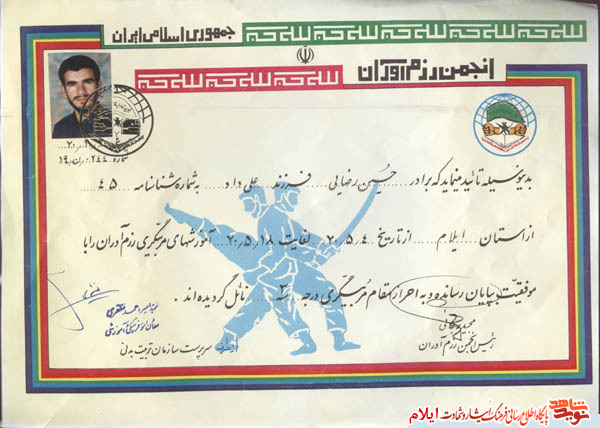 جمهوری اسلامی ایران
انجمن رزم آوران
شماره ۲۴۴
بدینوسیله تائید مینماید که برادر حسن رضایی فرزند علی داد به شماره شناسنامه ۴۵
از استان ایلام از تاریخ ۲۰٫۵٫۴ لغایت ۲۰٫۵٫۱۸ آموزشهای مربیگری رزم آوران را با
موفقیت بپایان رسانده و به احراز مقام مربیگری درجه ۳ نائل گردیده اند.
رئیس انجمن رزم آوران
سرپرست سازمان تربیت بدنی
شاهد
نوید
پایگاه اطلاع رسانی فرهنگ ایثار و شهادت ایلام